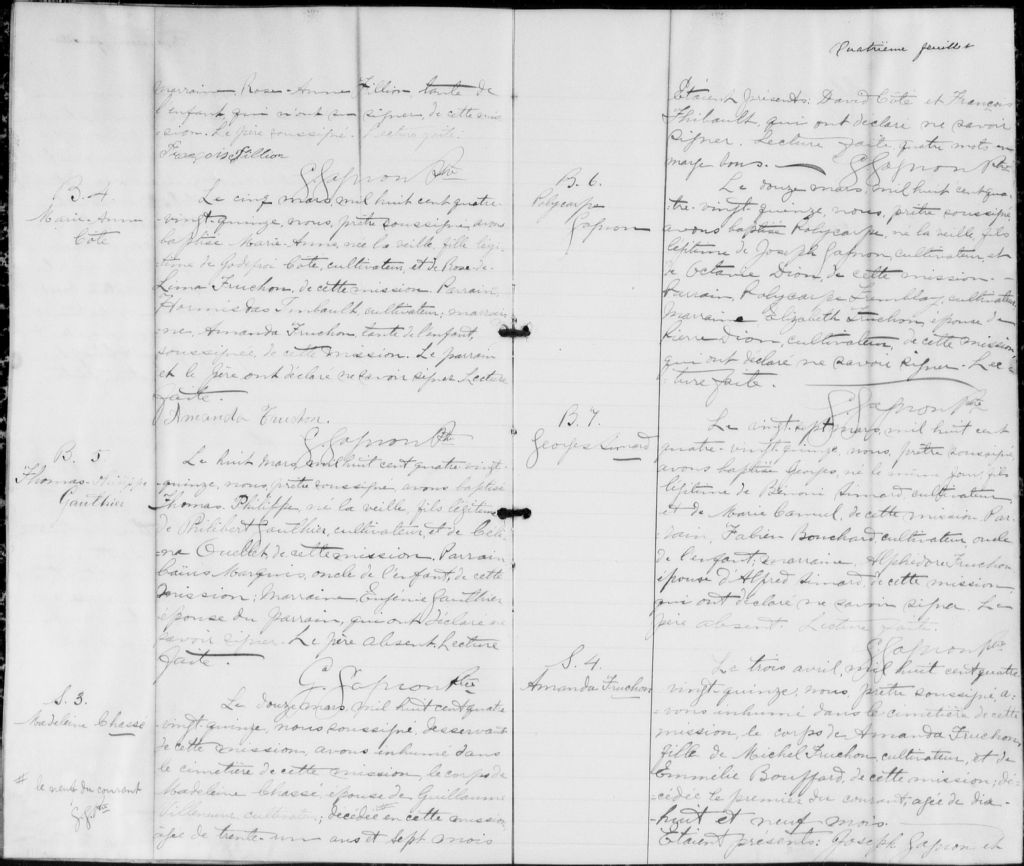 marraine Rose-Anne Fillion tante de
l'enfant, qui n'ont su signer, de cette mis
sion. Le père soussigné. Lecture faite.
François Fillion
G. Gagnon Ptre
B. 4.
Marie-Anne
Côté
Le cinq mars, mil huit cent quatre-
vingt-quinze, nous, prêtre soussigné avons
baptisé Marie-Anne, née la veille, fille légi-
time de Godefroi Côté, cultivateur, et de Rose-de-
Lima Fruchon, de cette mission. Parrain,
Hormisdas Imbault, cultivateur; marrai-
ne, Amanda Fruchon, tante de l'enfant,
soussignée, de cette mission. Le parrain
et le père ont déclaré ne savoir signer. Lecture
faite.
Amanda Fruchon.
G. Gagnon Ptre
B. 5
Thomas-Philippe
Gauthier
Le huit mars, mil huit cent quatre vingt-
quinze, nous, prêtre soussigné avons baptisé
Thomas Philippe, né la veille, fils légitime
de Philibert Gauthier, cultivateur, et de Céli-
na Ouellet de cette mission, Parrain
Marquis, oncle de l'enfant, de cette
mission; Marraine Eugénie Gauthier
épouse du Parrain, qui ont déclaré ne
savoir signer. Le père absent. Lecture
faite.
G. Gagnon Ptre
S. 3.
Madeleine Chassé
Le douze mars, mil huit cent quatre
vingt-quinze, nous soussigné, desservant
de cette mission, avons inhumé dans
le cimetière de cette mission, le corps de
Madeleine Chassé épouse de Guillaume
Villeneuve cultivateur; décédée # en cette mission
âgée de trente-un ans et sept mois
# le neuf du courant
G. G. Ptre
Quatrième feuillet
Étaient présents: David Côté et François
Thibault, qui ont déclaré ne savoir
signer. Lecture faite, quatre mots en
marge bons. — G. Gagnon Ptre
B. 6.
Polycarpe
Gagnon
Le douze mars, mil huit cent qua-
tre-vingt quinze, nous, prêtre soussigné,
avons baptisé Polycarpe, né la veille, fils
légitime de Joseph Gagnon, cultivateur, et
de Octavie Dion, de cette mission.-
Parrain, Polycarpe Tremblay, cultivateur
marraine Elizabeth Fruchon, épouse de
Pierre Dion, cultivateur, de cette mission,
qui ont déclaré ne savoir signer. Lec-
ture faite.
G. Gagnon Ptre
B. 7.
Georges Simard
Le vingt-sept mars, mil huit cent
quatre-vingt-quinze, nous, prêtre soussigné,
avons baptisé Georges, né le même jour, fils
légitime de Bénoni Simard, cultivateur
et de Marie Camuel, de cette mission. Par-
rain, Fabien Bouchard, cultivateur, oncle
de l'enfant; marraine, Alphédore Fruchon
épouse d'Alfred Simard, de cette mission
qui ont déclaré ne savoir signer. Le
père absent. Lecture faite.
G. Gagnon Ptre
S. 4.
Amanda Fruchon
Le trois avril, mil huit cent quatre
vingt-quinze, nous, prêtre soussigné a-
vons inhumé dans le cimetière de cette
mission, le corps de Amanda Fruchon,
fille de Michel Fruchon, cultivateur, et de
Emmélie Bouffard, de cette mission; dé-
cédée le premier du courant; âgée de dix-
huit et neuf mois
Étaient présents: Joseph Gagnon et